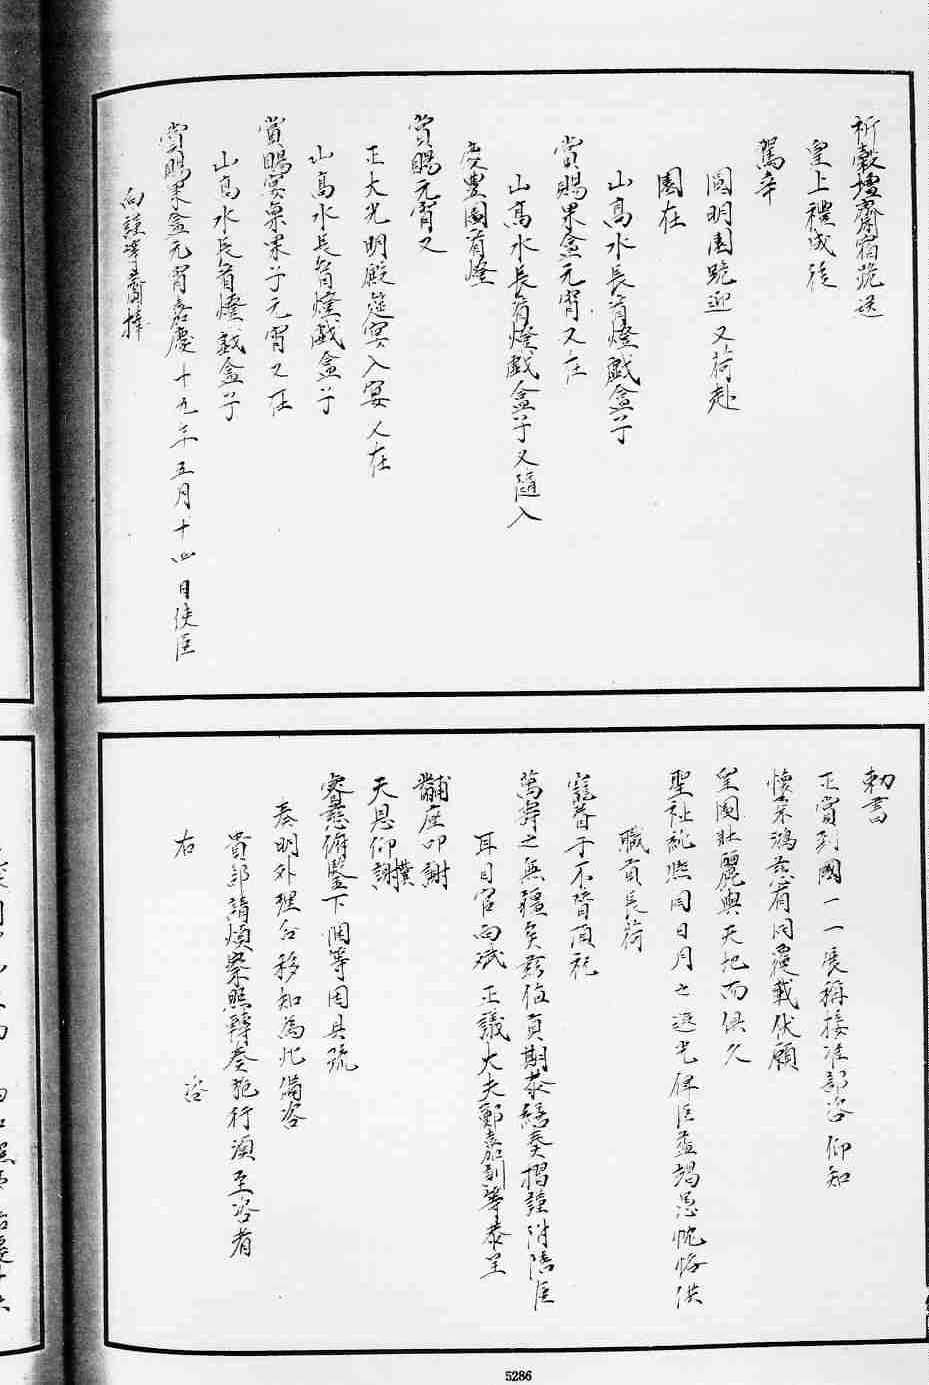 祈穀壇齋宿跪送
皇上禮成後
駕幸
圓明園跪迎又荷赴
園在
山髙水長看燈戲盒子
賞賜果盒元宵又在
山髙水長看燈戲盒子又隨入
慶豊園看燈
賞賜元宵又
正大光明殿筵宴入宴又在
山髙水長看燈戲盒子
賞賜宴桌果子元宵又在
山髙水長看燈戲盒子
賞賜果盒元宵嘉慶十九年五月十四日使臣
向謹等齎捧
勅書
正賞到國一一長稱接准部咨仰知
懷柔鴻慈有同覆載伏願
皇圖壯麗與天地而俱久
聖祉純熙同日月之遐光俾臣益竭愚忱恪供
職貢長荷
寵眷于不替頂祝
萬壽之無疆矣兹値貢期恭繕奏摺謹附陪臣
耳目官向斌正議大夫鄭嘉訓等恭呈
黼座叩謝
天恩仰謝撲
睿慈俯鑒下悃等因具疏
奏明外理合移知為此備咨
貴部請煩察照轉奏施行須至咨者
右
咨
5286